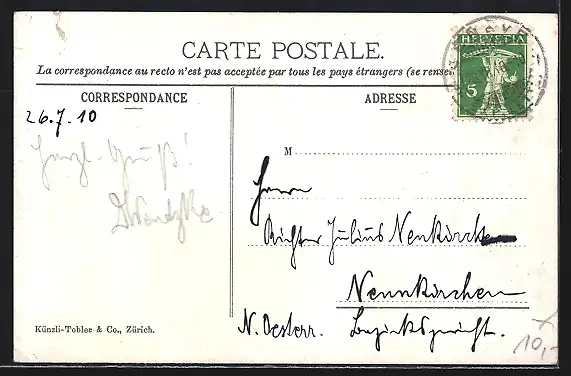 CARTE POSTALE.
La correspondance au recto n'est pas acceptée par tous les pays étrangers (se rensei
CORRESPONDANCE
ADRESSE
HELVETIA
5
26.7.10
Herzl. Gruß!
M
Herrn
Richter Julius
Neunkirchen
N. Oesterr. Bezirksgericht.
Künzli-Tobler & Co., Zürich.
10,-